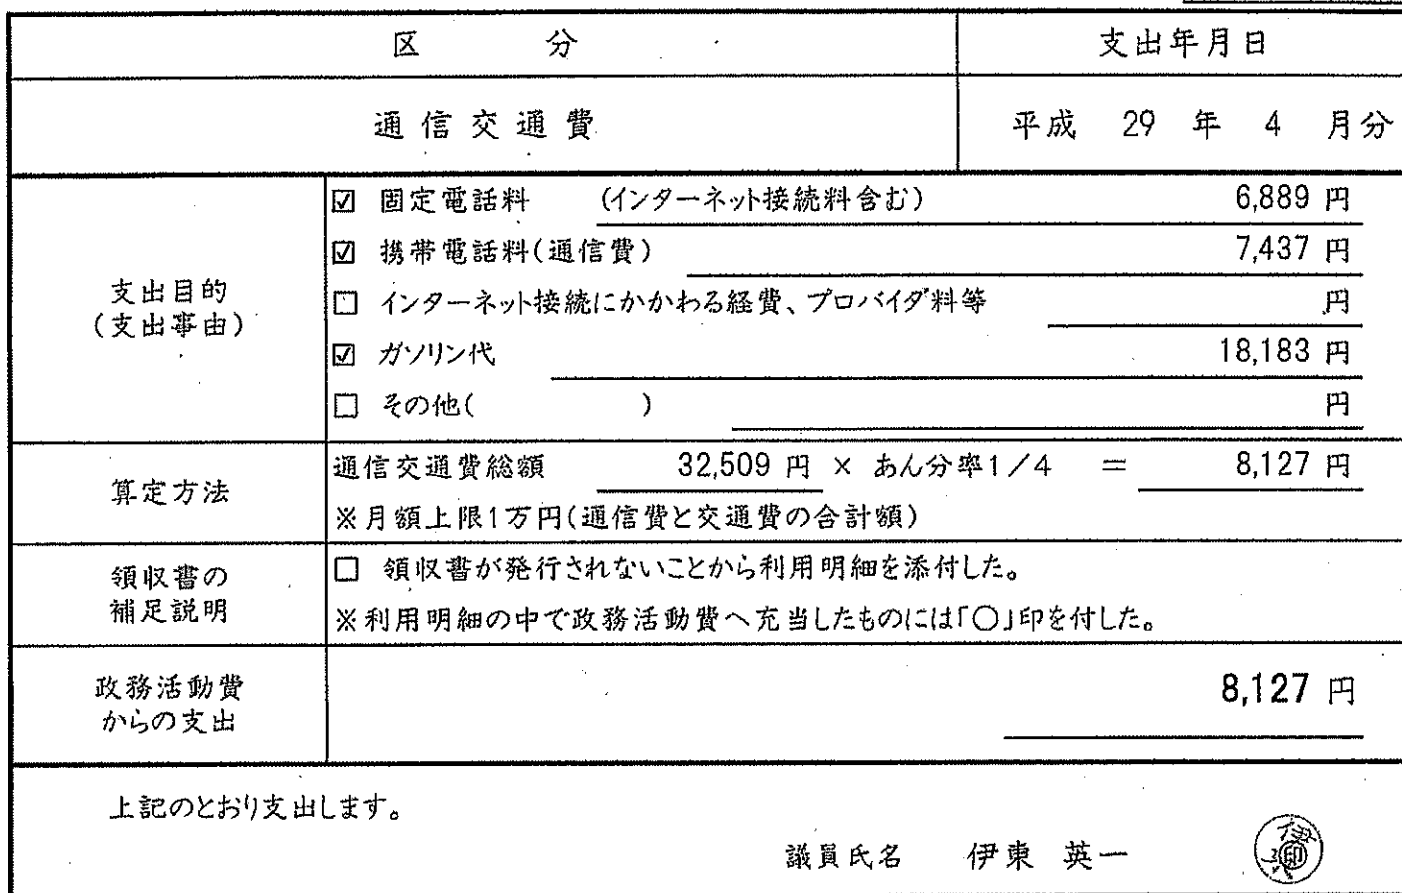 区 分 支出年月日
通信交通費 平成 29 年 4 月分
☑ 固定電話料 (インターネット接続料含む) 6,889 円
☑ 携帯電話料(通信費) 7,437 円
支出目的
(支出事由)
□ インターネット接続にかかわる経費、プロバイダ料等 円
☑ ガソリン代 18,183 円
□ その他( ) 円
算定方法
通信交通費総額 32,509 円 × あん分率1/4 = 8,127 円
※月額上限1万円(通信費と交通費の合計額)
領収書の
補足説明
□ 領収書が発行されないことから利用明細を添付した。
※利用明細の中で政務活動費へ充当したものには「○」印を付した。
政務活動費
からの支出
8,127 円
上記のとおり支出します。
議員氏名 伊東 英一 印